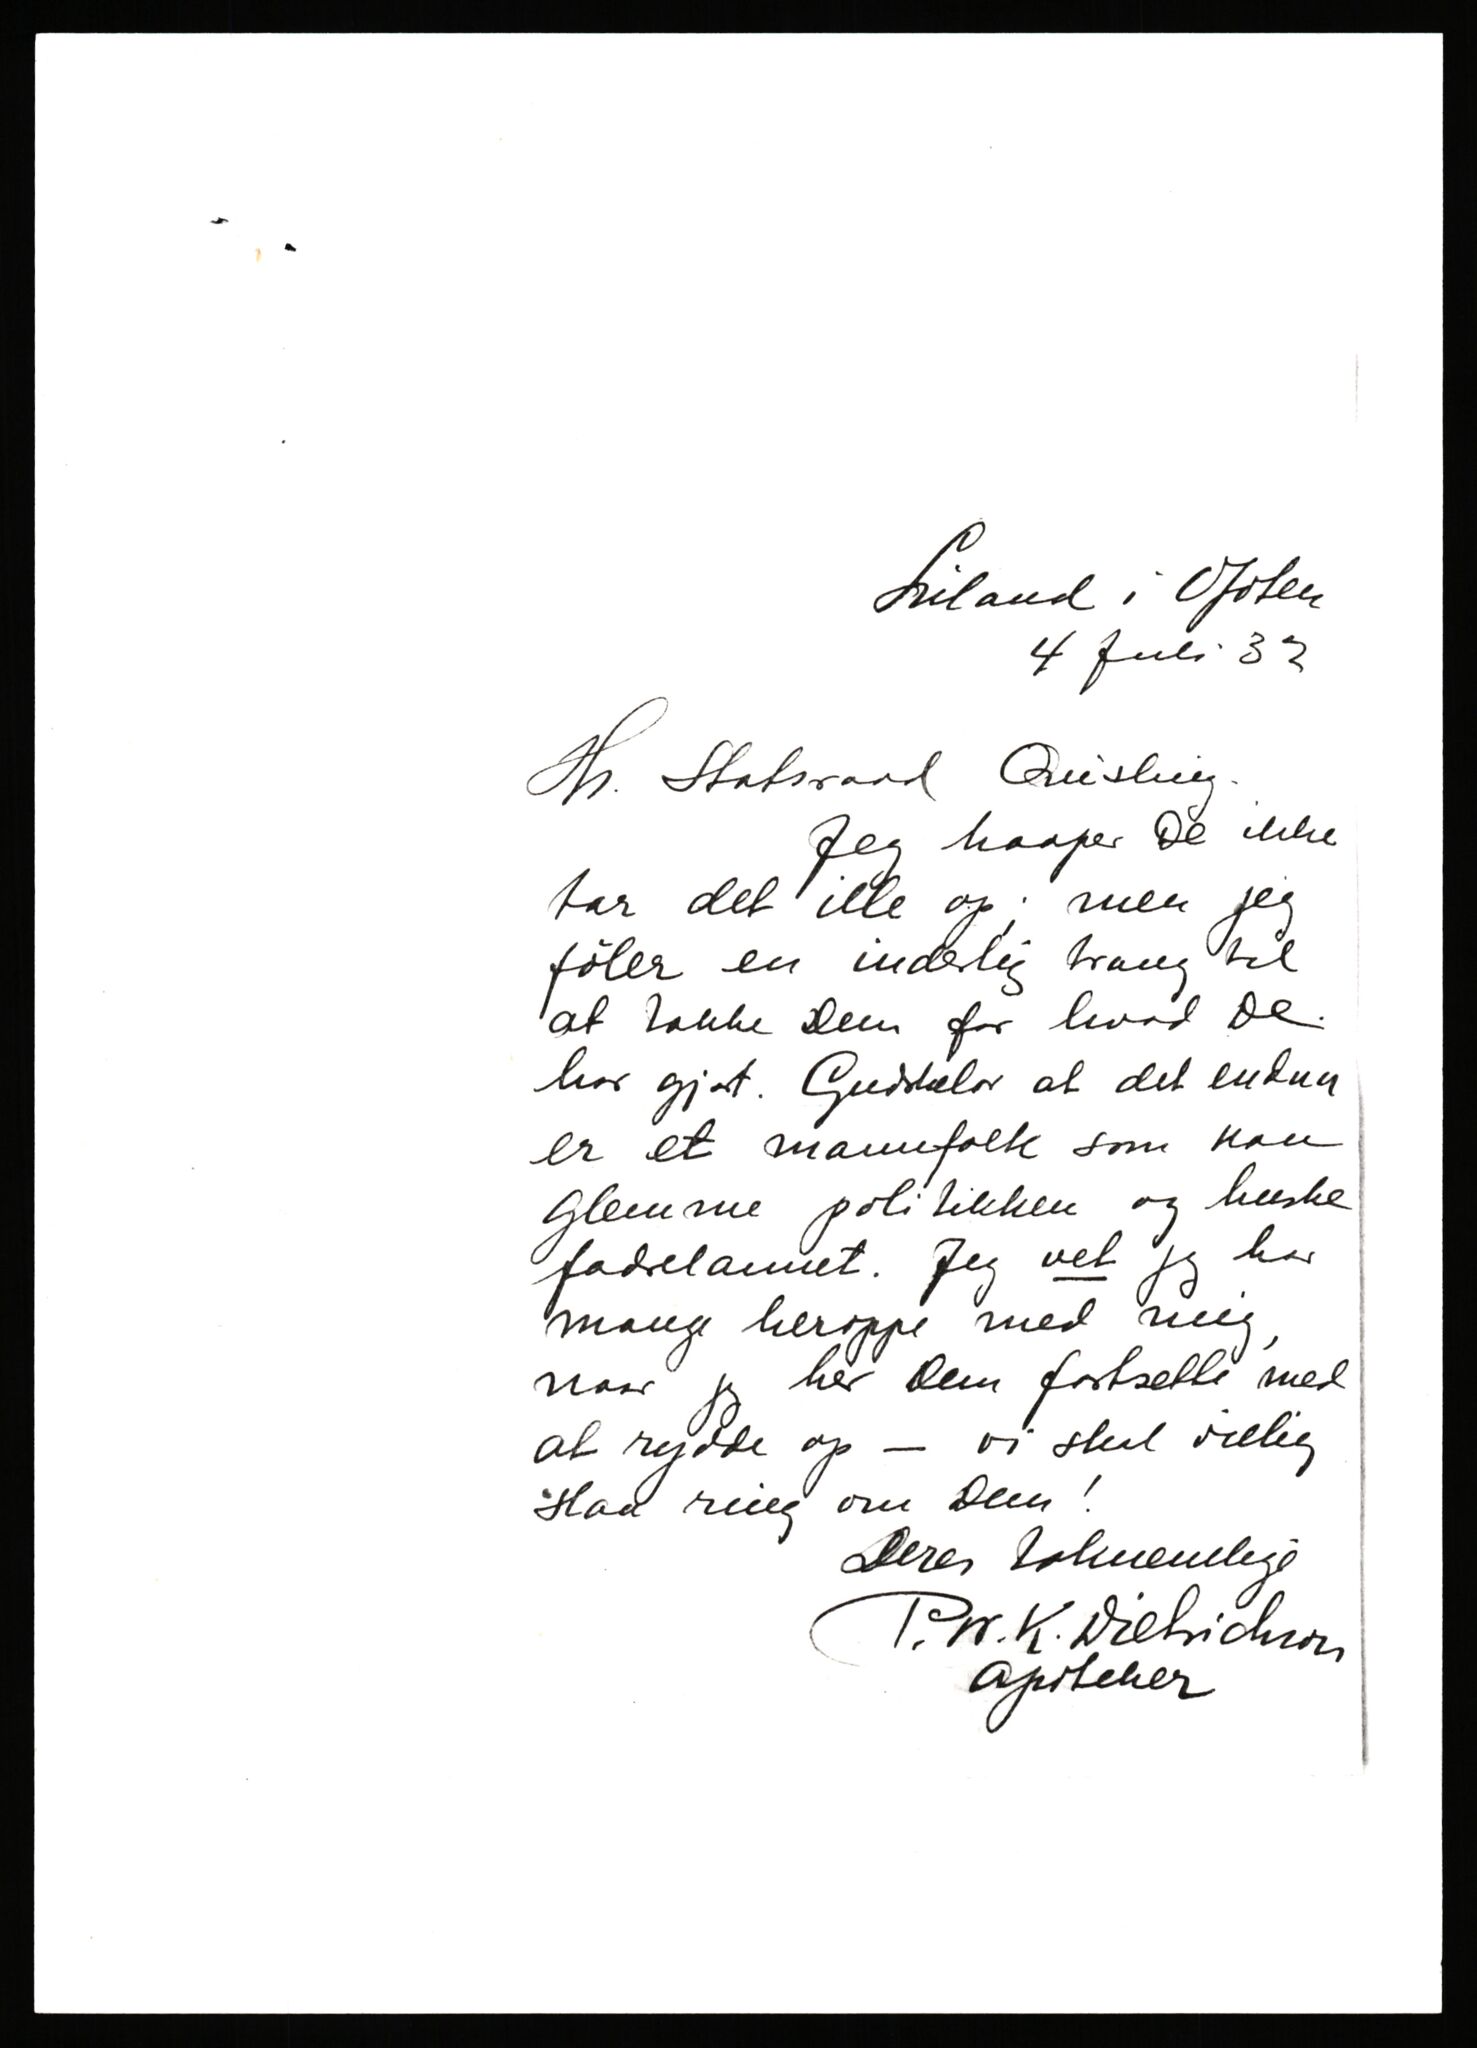 Liland i Ofoten
4 Juli 32
Hr. Statsraad Quisling.
Jeg haaper De ikke
tar det ille op; men jeg
föler en inderlig trang til
at takke Dem for hvad De
har gjort. Gudskelov at det endnu
er et mannfolk som kan
glemme politikken og huske
fædrelannet. Jeg vet jeg har
mange heroppe med mig,
naar jeg ber Dem fortsette med
at rydde op — vi skal villig
staa ring om Dem!
Deres taknemlige
P. W. K. Dietrichson
apoteker